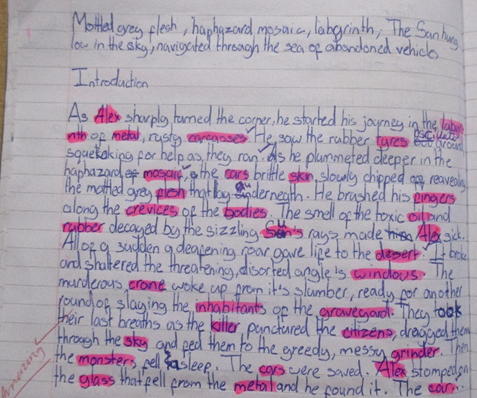 Mottled grey flesh, haphazard mosaic, labyrinth, The Sun hung
low in the sky, navigated through the sea of abandoned vehicles
Introduction
As Alex sharply turned the corner, he started his journey in the labyr
nth of metal, rusty carcasses. He saw the rubber tyres around
squeaking for help as they ran. As he plummeted deeper in the
haphazard mosaic, the cars brittle skin, slowly chipped off revealing
the mottled grey flesh that lay underneath. He brushed his fingers
along the crevices of the bodies. The smell of the toxic oil and
rubber decayed by the sizzling Sun's rays made Alex sick.
All of a sudden a deafening roar gave life to the desert. It broke
and shattered the threatening, disorted angle's windows. The
murderous, crane woke up from it's slumber, ready for another
round of slaying the inhabitants of the graveyard. They took
their last breaths as the killer punctured the citizens, dragged them
through the sky and fed them to the greedy, messy grinder. Then
the monsters, fell asleep. The cars were saved. Alex stomped on
the glass that fell from the metal and he found it. The car.